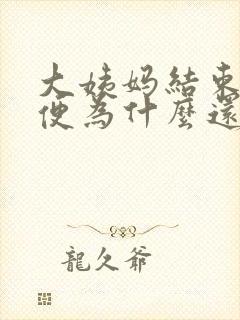 大姨妈結束
便為什麼還
龍久爺